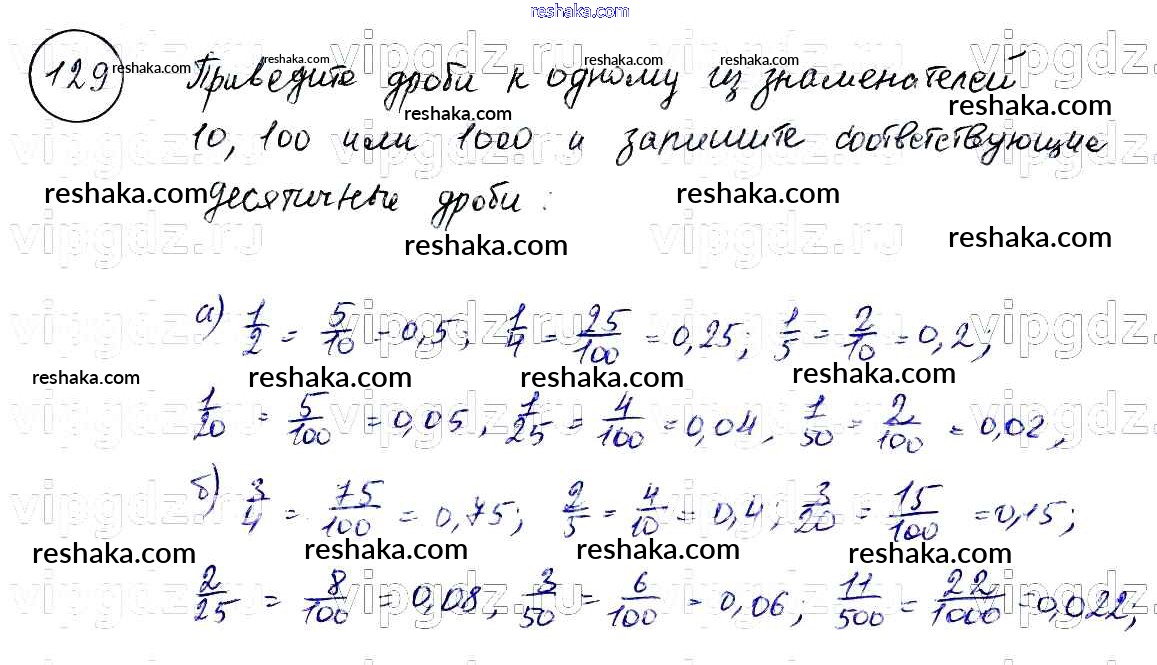 reshaka.com
129 Приведите дроби к одному из знаменателей
10, 100 или 1000 и запишите соответствующие
десятичные дроби:
а) 1/2 = 5/10 = 0,5; 1/4 = 25/100 = 0,25; 1/5 = 2/10 = 0,2;
1/20 = 5/100 = 0,05, 1/25 = 4/100 = 0,04, 1/50 = 2/100 = 0,02,
б) 3/4 = 75/100 = 0,75; 2/5 = 4/10 = 0,4; 3/20 = 15/100 = 0,15;
2/25 = 8/100 = 0,08, 3/50 = 6/100 = 0,06; 11/500 = 22/1000 = 0,022;